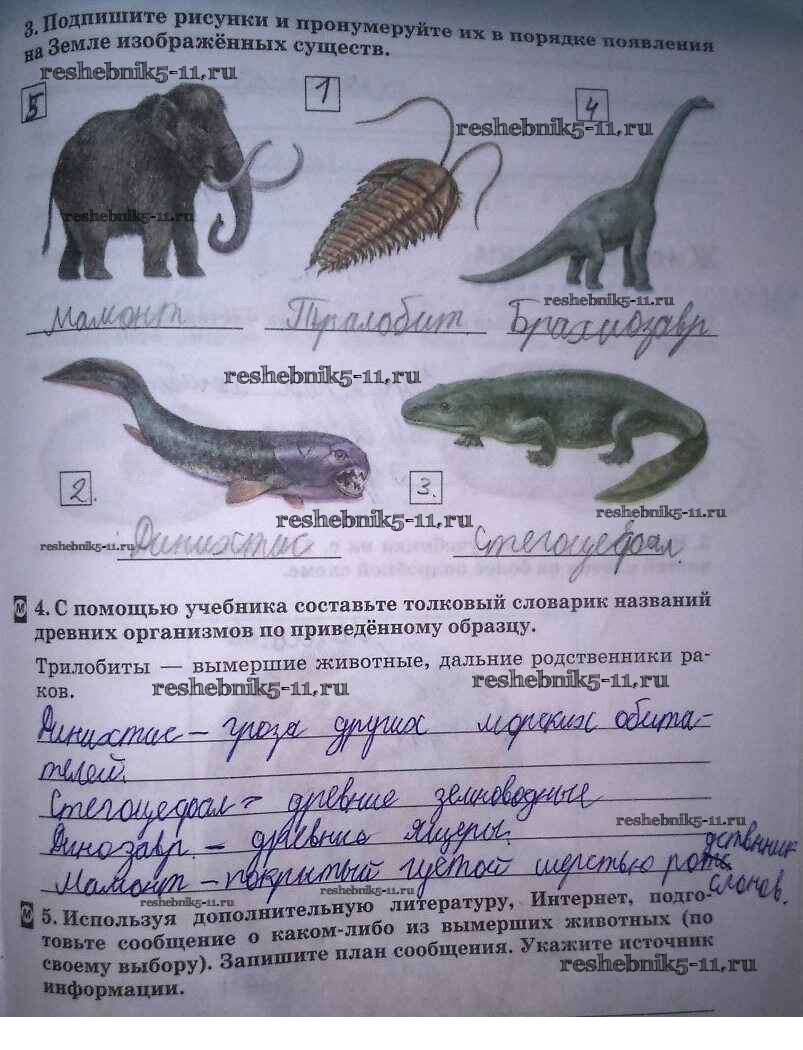 3. Подпишите рисунки и пронумеруйте их в порядке появления
на Земле изображённых существ.
reshebnik5-11.ru
5
1
4
reshebnik5-11.ru
reshebnik5-11.ru
reshebnik5-11.ru
Мамонт
Трилобит
Брахиозавр
reshebnik5-11.ru
2.
3.
reshebnik5-11.ru
reshebnik5-11.ru
reshebnik5-11.ru
Динихтис
Стегоцефал.
М 4. С помощью учебника составьте толковый словарик названий
древних организмов по приведённому образцу.
Трилобиты — вымершие животные, дальние родственники ра-
ков.
reshebnik5-11.ru
reshebnik5-11.ru
Динихтис – гроза других морских обита-
телей.
Стегоцефал – древние земноводные
reshebnik5-11.ru
Динозавр – древние ящеры.
Мамонт – покрытый густой шерстью родственник
слонов.
reshebnik5-11.ru
reshebnik5-11.ru
М 5. Используя дополнительную литературу, Интернет, подго-
товьте сообщение о каком-либо из вымерших животных (по
своему выбору). Запишите план сообщения. Укажите источник
информации.
reshebnik5-11.ru